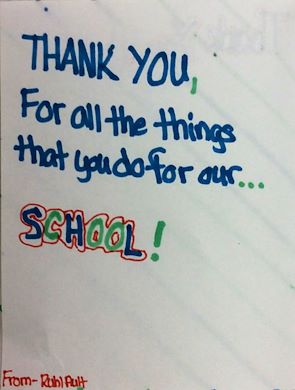 THANK YOU,
For all the things
that you do for our...
SCHOOL!
From-